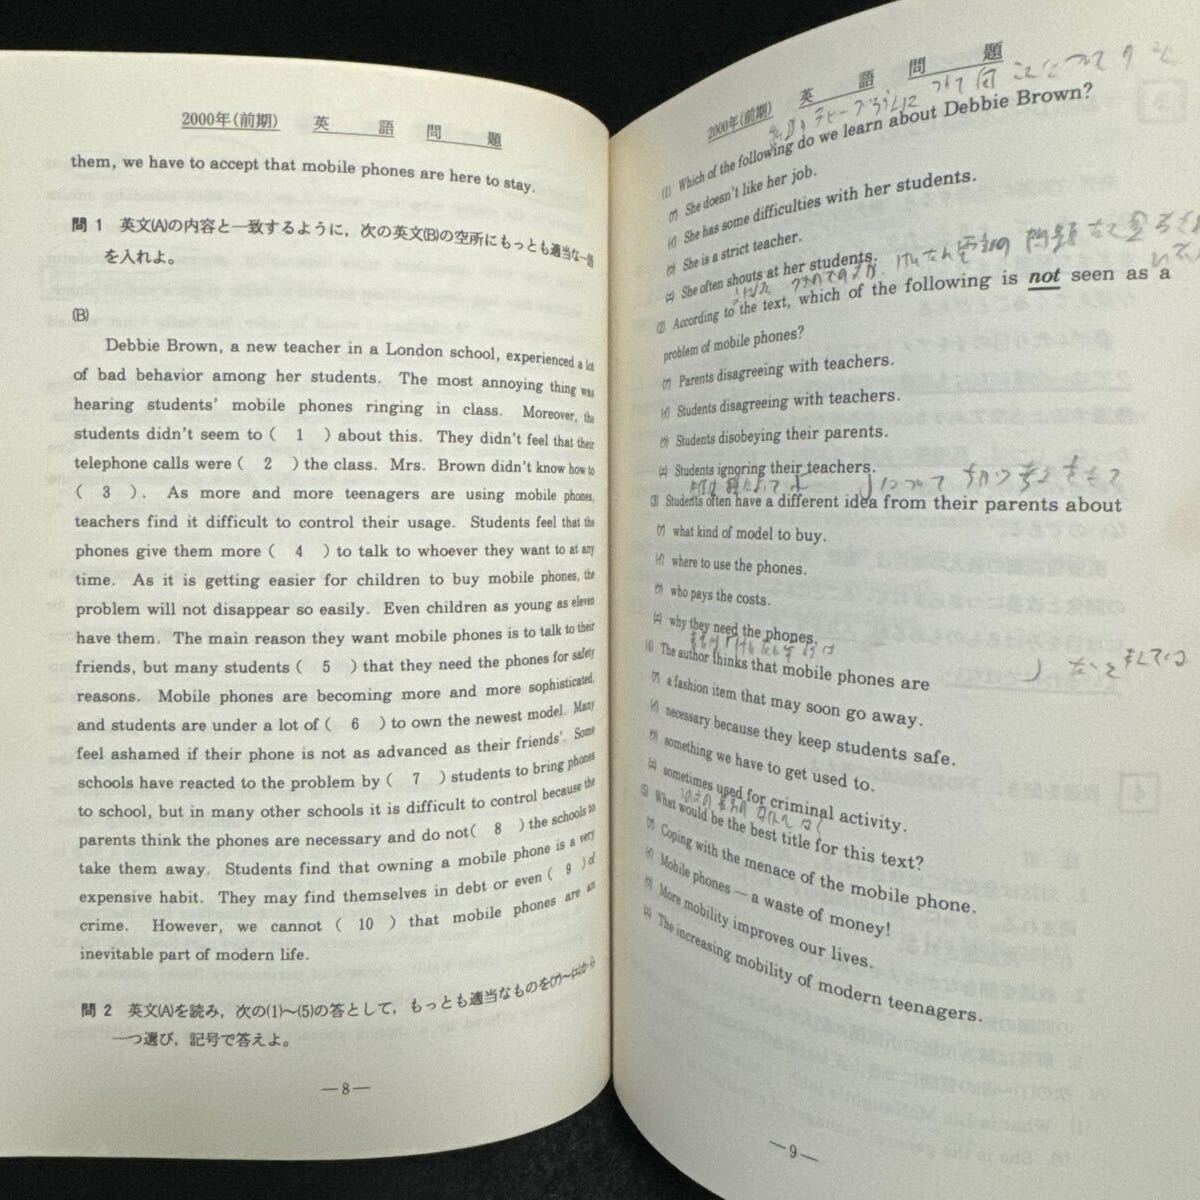 2000年(前期) 英語問題
them, we have to accept that mobile phones are here to stay.
問 1 英文(A)の内容と一致するように，次の英文(B)の空所にもっとも適当な一語
を入れよ。
(B)
Debbie Brown, a new teacher in a London school, experienced a lot
of bad behavior among her students. The most annoying thing was
hearing students' mobile phones ringing in class. Moreover, the
students didn't seem to ( 1 ) about this. They didn't feel that their
telephone calls were ( 2 ) the class. Mrs. Brown didn't know how to
( 3 ). As more and more teenagers are using mobile phones,
teachers find it difficult to control their usage. Students feel that the
phones give them more ( 4 ) to talk to whoever they want to at any
time. As it is getting easier for children to buy mobile phones, the
problem will not disappear so easily. Even children as young as eleven
have them. The main reason they want mobile phones is to talk to their
friends, but many students ( 5 ) that they need the phones for safety
reasons. Mobile phones are becoming more and more sophisticated,
and students are under a lot of ( 6 ) to own the newest model. Many
feel ashamed if their phone is not as advanced as their friends'. Some
schools have reacted to the problem by ( 7 ) students to bring phones
to school, but in many other schools it is difficult to control because the
parents think the phones are necessary and do not ( 8 ) the schools to
take them away. Students find that owning a mobile phone is a very
expensive habit. They may find themselves in debt or even ( 9 ) of
crime. However, we cannot ( 10 ) that mobile phones are an
inevitable part of modern life.
問 2 英文(A)を読み，次の(1)〜(5)の答として，もっとも適当なものを(ア)〜(エ)から
一つ選び，記号で答えよ。
—8—
2000年(前期) 英語問題
(1) Which of the following do we learn about Debbie Brown?
(ア) She doesn't like her job.
(イ) She has some difficulties with her students.
(ウ) She is a strict teacher.
(エ) She often shouts at her students.
(2) According to the text, which of the following is not seen as a
problem of mobile phones?
(ア) Parents disagreeing with teachers.
(イ) Students disagreeing with teachers.
(ウ) Students disobeying their parents.
(エ) Students ignoring their teachers.
(3) Students often have a different idea from their parents about
(ア) what kind of model to buy.
(イ) where to use the phones.
(ウ) who pays the costs.
(エ) why they need the phones.
(4) The author thinks that mobile phones are
(ア) a fashion item that may soon go away.
(イ) necessary because they keep students safe.
(ウ) something we have to get used to.
(エ) sometimes used for criminal activity.
(5) What would be the best title for this text?
(ア) Coping with the menace of the mobile phone.
(イ) Mobile phones — a waste of money!
(ウ) More mobility improves our lives.
(エ) The increasing mobility of modern teenagers.
—9—